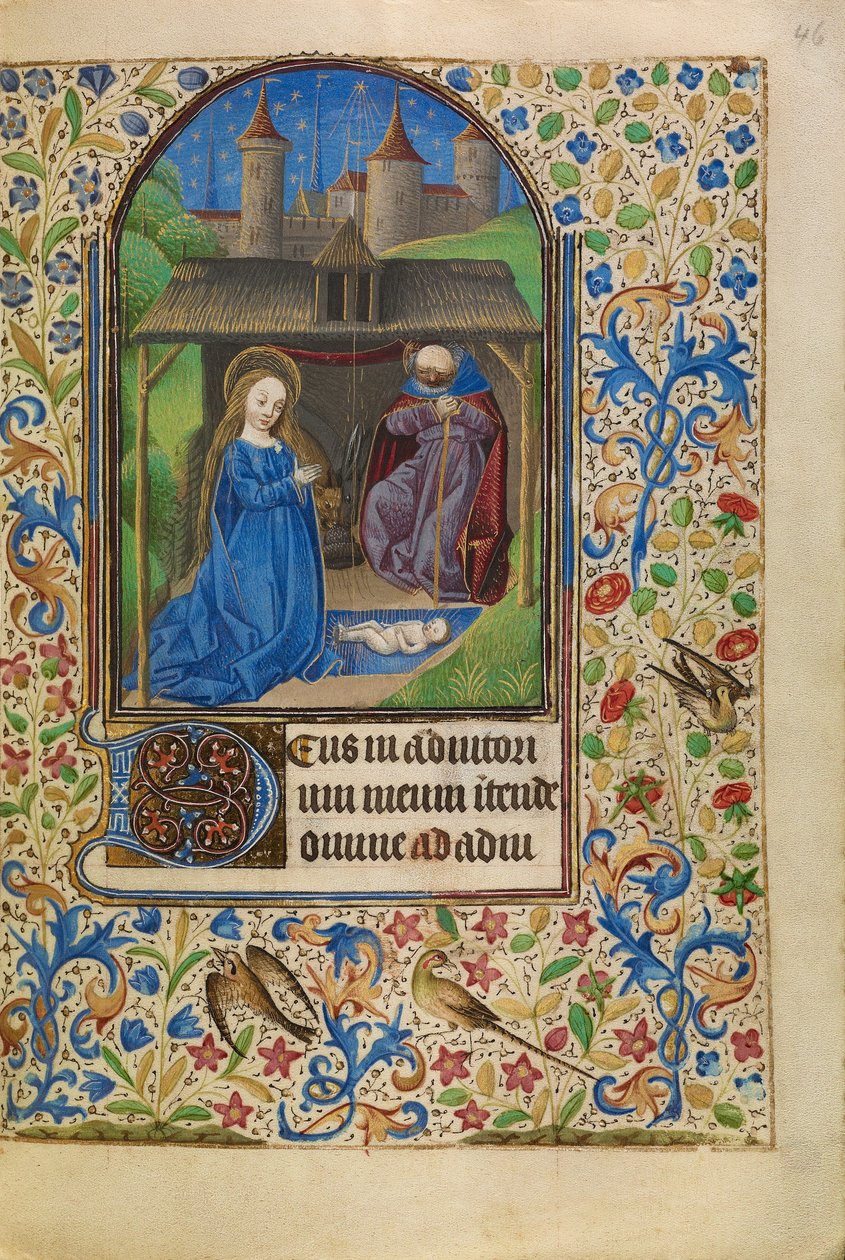 46
Deus in adiutori
um meum itende
omine ad adiu